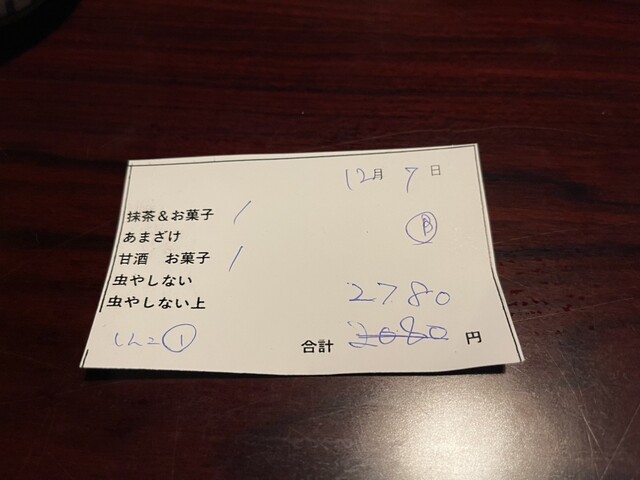 12月 7日
抹茶＆お菓子 /
あまざけ
甘酒 お菓子 /
虫やしない
虫やしない上
2780
しんこ ①
合計 2080 円